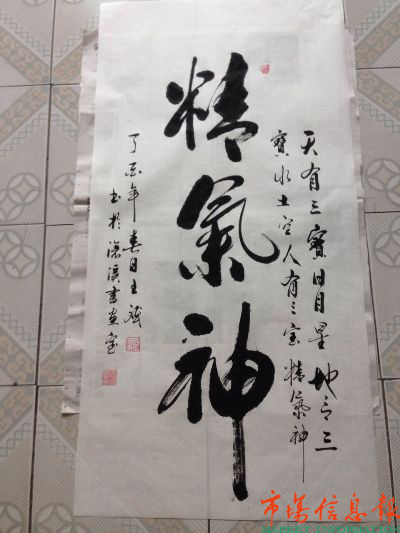 天有三寶日月星地有三
寶水土空人有三宝精氣神
精氣神
丁酉年春日王斌
书於溪書画室
市场信息报